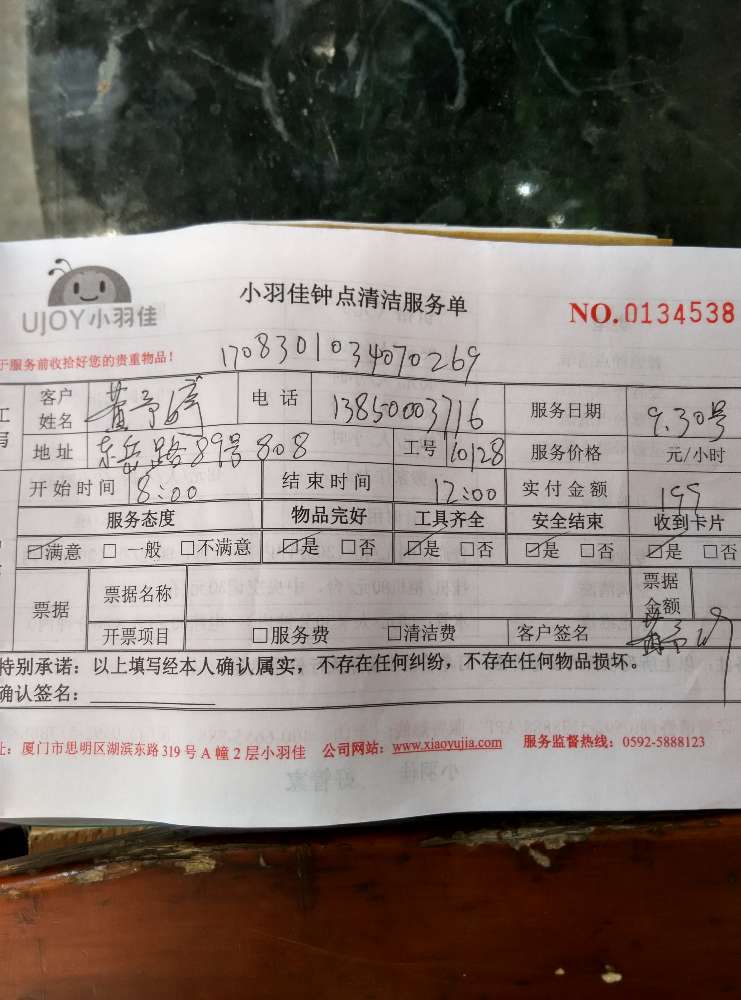 UJOY小羽佳
小羽佳钟点清洁服务单
NO.0134538
于服务前收拾好您的贵重物品!
1708301034070269
客户姓名 黄予 电话 13850003716 服务日期 9.30号
地址 东岳路89号808 工号 10128 服务价格 元/小时
开始时间 8:00 结束时间 12:00 实付金额 199
服务态度 物品完好 工具齐全 安全结束 收到卡片
☑满意 □ 一般 □不满意 ☑是 □否 ☑是 □否 ☑是 □否 ☑是 □否
票据 票据名称 票据金额
开票项目 □服务费 □清洁费 客户签名 黄予
特别承诺:以上填写经本人确认属实,不存在任何纠纷,不存在任何物品损坏。
确认签名:
址:厦门市思明区湖滨东路319号A幢2层小羽佳 公司网站:www.xiaoyujia.com 服务监督热线:0592-5888123